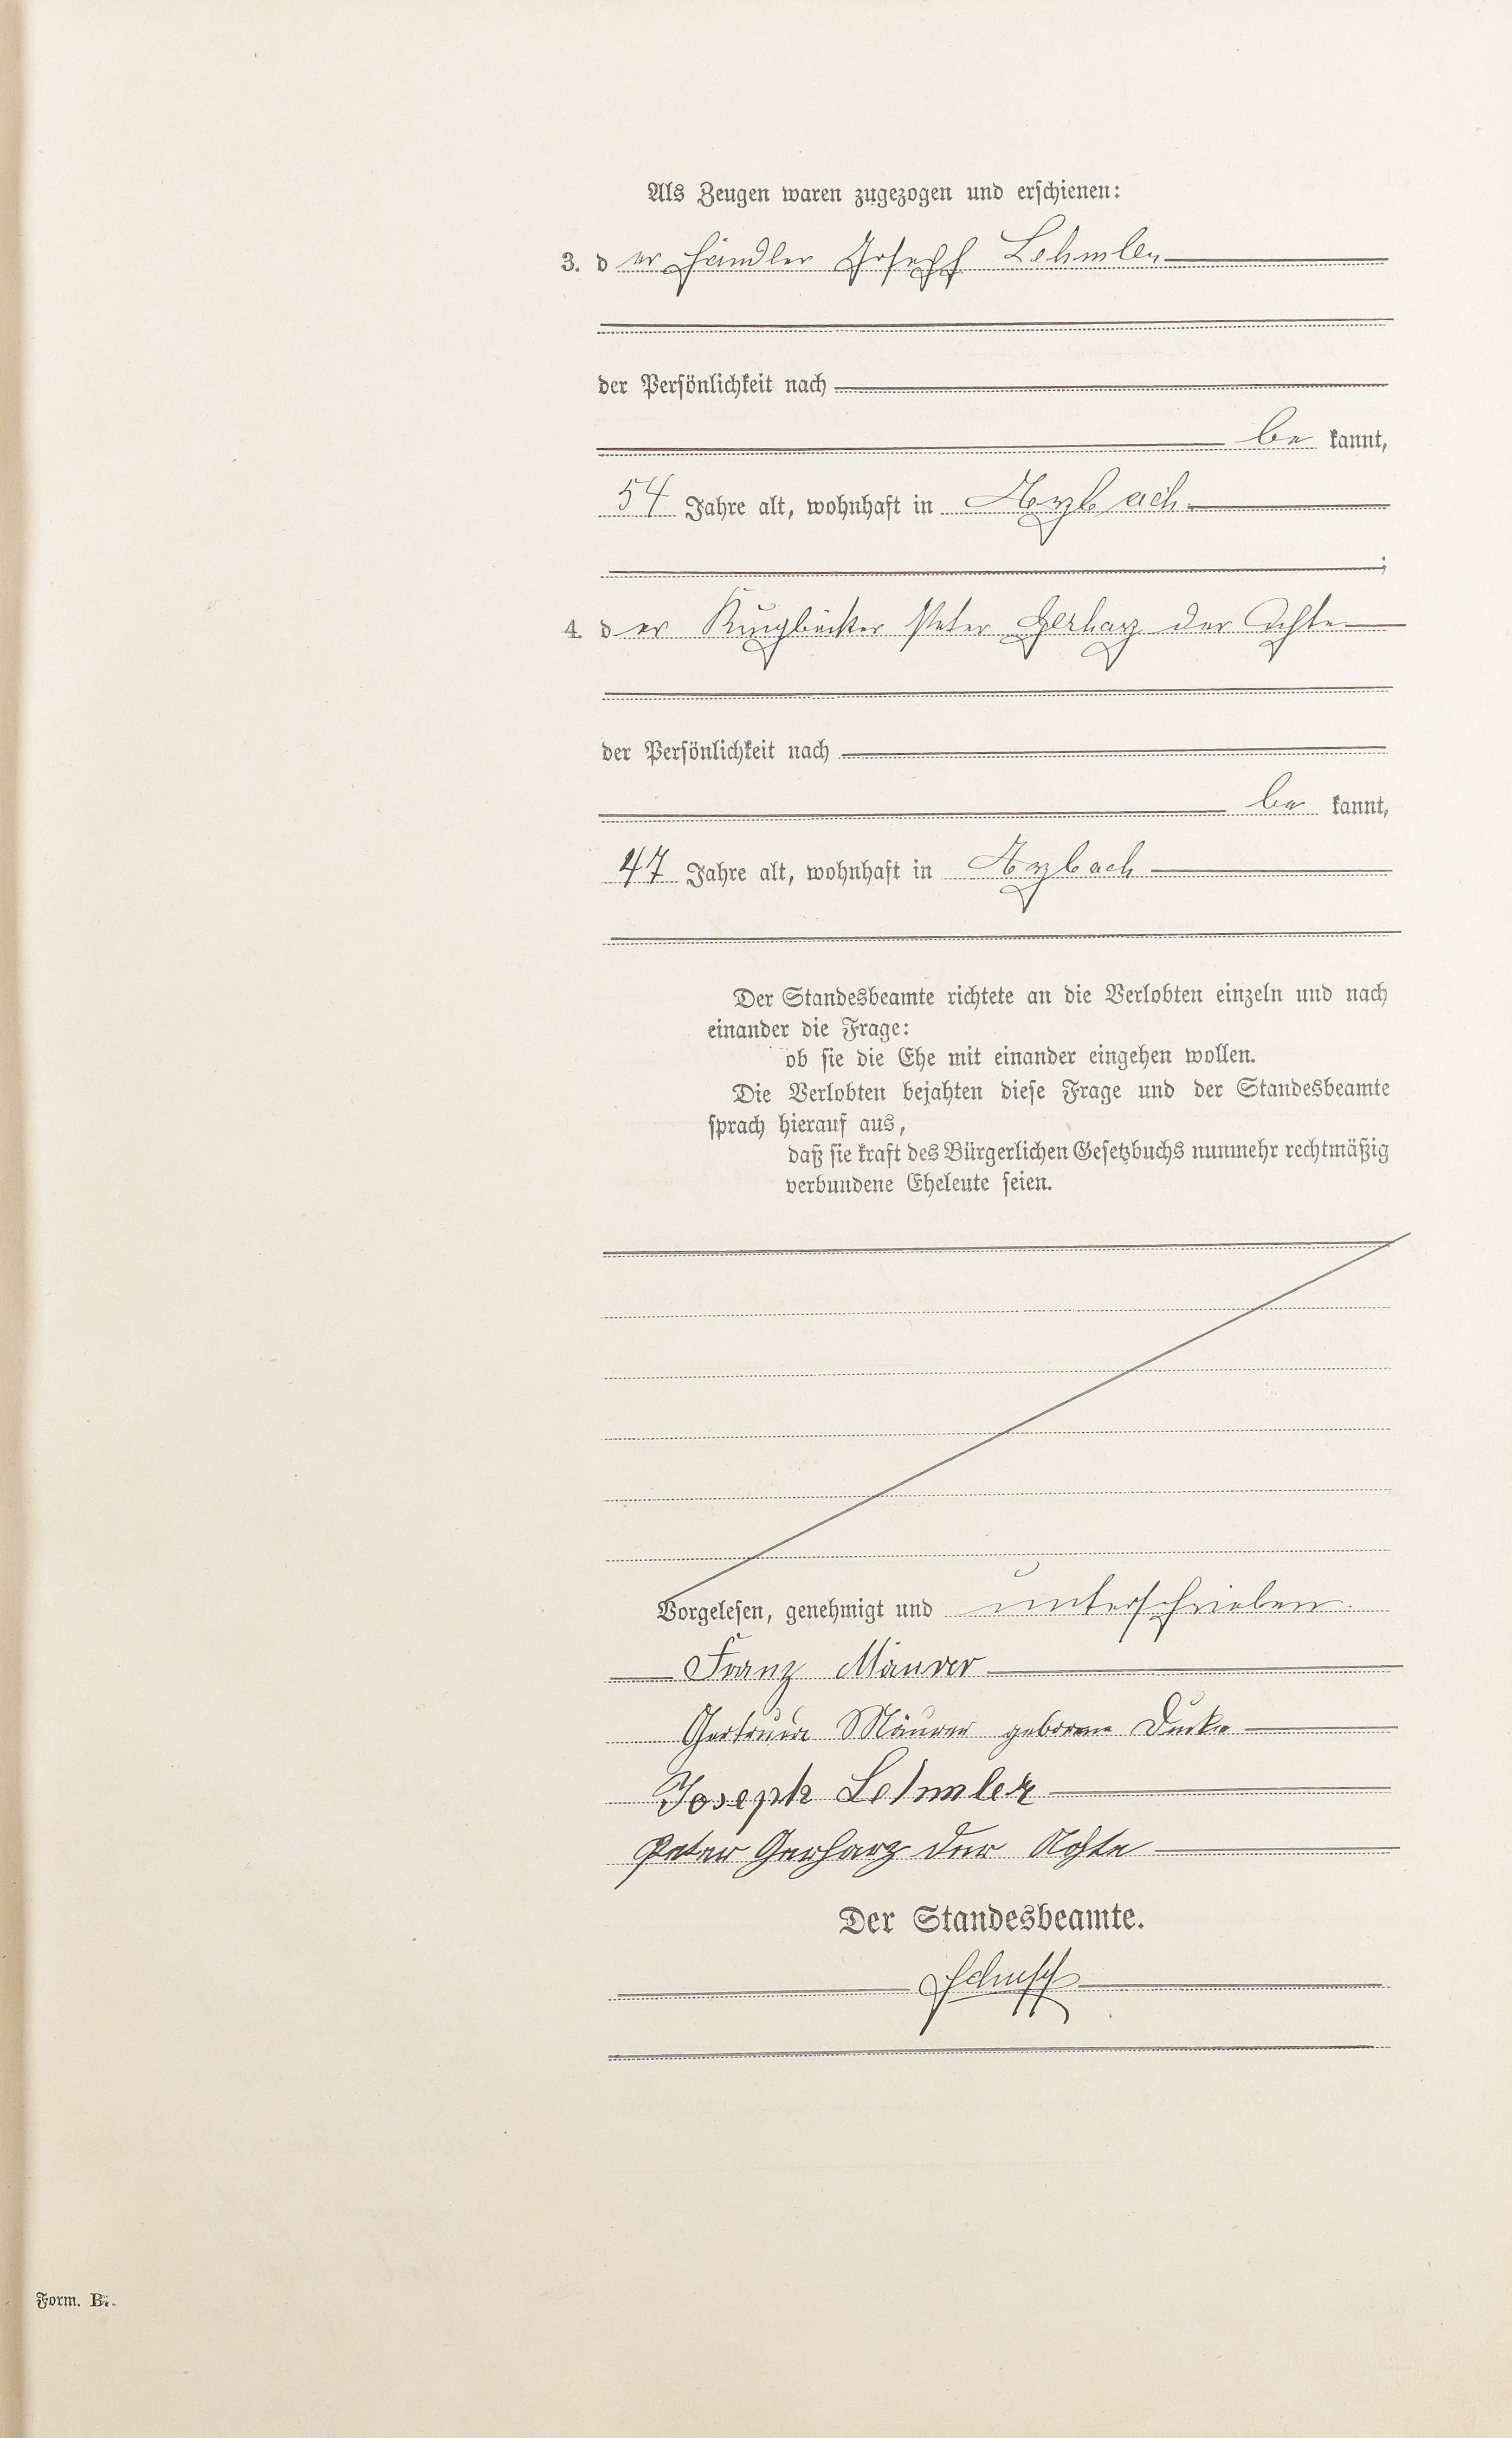 Als Zeugen waren zugezogen und erschienen:
3. der Händler Joseph Lehmler
der Persönlichkeit nach
be kannt,
54 Jahre alt, wohnhaft in Arzbach
;
4. der Krugbäcker Peter Gerharz der Achte
der Persönlichkeit nach
be kannt,
47 Jahre alt, wohnhaft in Arzbach
Der Standesbeamte richtete an die Verlobten einzeln und nach
einander die Frage:
ob sie die Ehe mit einander eingehen wollen.
Die Verlobten bejahten diese Frage und der Standesbeamte
sprach hierauf aus,
daß sie kraft des Bürgerlichen Gesetzbuchs nunmehr rechtmäßig
verbundene Eheleute seien.
Vorgelesen, genehmigt und unterschrieben.
Franz Mäurer
Gertruda Mäurer geborene
Joseph Lehmler
Peter Gerharz der Achte
Der Standesbeamte.
Form. B.